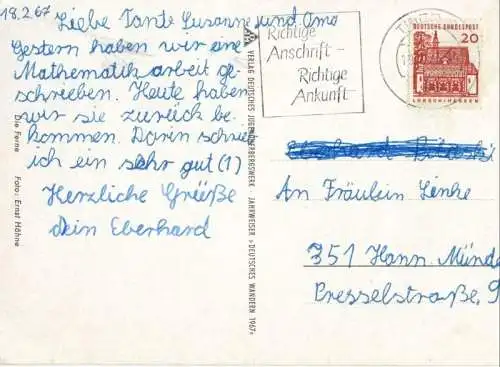 18.2.67
Liebe Tante Susanne und Oma
Gestern haben wir eine
Mathematikarbeit ge-
schrieben. Heute haben
wir sie zurück be-
kommen. Darin schrieb
ich ein sehr gut (1)
Herzliche Grüße
Dein Eberhard
Die Ferne
Foto: Ernst Höhne
VERLAG DEUTSCHES JUGENDHERBERGSWERK
JAHRWEISER »DEUTSCHES WANDERN 1967«
Richtige
Anschrift –
Richtige
Ankunft
DEUTSCHE BUNDESPOST
20
LORSCH/HESSEN
An Fräulein Lenke
351 Hann. Münde
Presselstraße 9